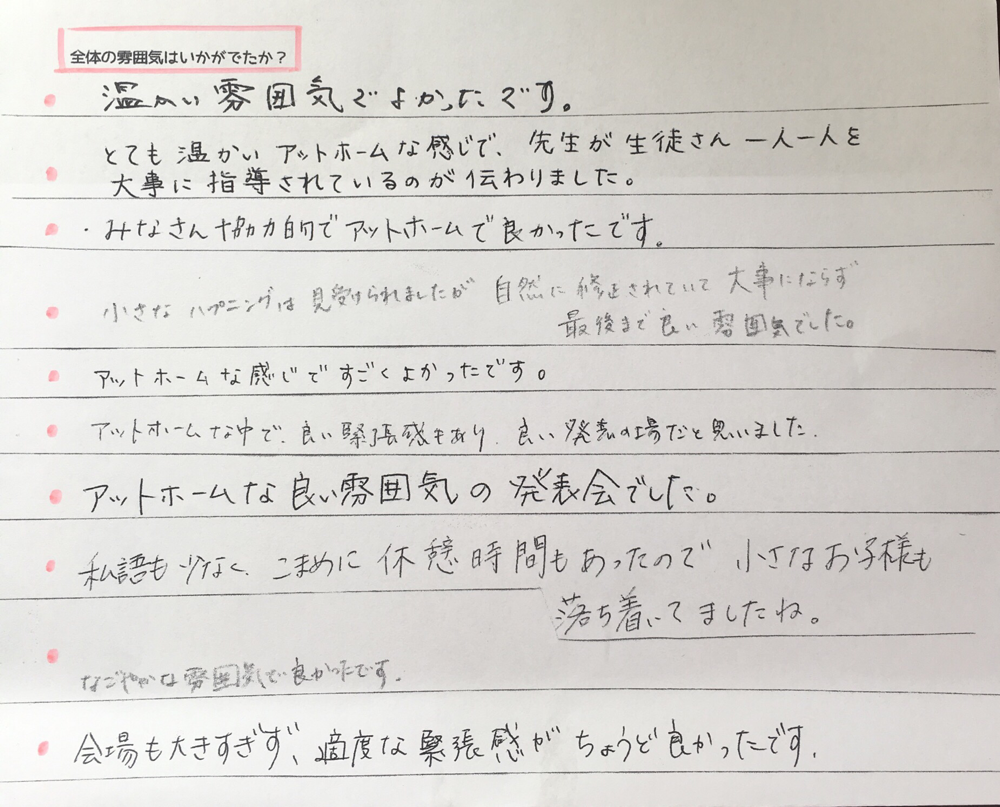 全体の雰囲気はいかがでたか？
温かい雰囲気でよかったです。
とても温かいアットホームな感じで、先生が生徒さん一人一人を
大事に指導されているのが伝わりました。
・みなさん協力的でアットホームで良かったです。
小さなハプニングは見受けられましたが自然に修正されていて大事にならず
最後まで良い雰囲気でした。
アットホームな感じですごくよかったです。
アットホームな中で、良い緊張感もあり、良い発表の場だと思いました。
アットホームな良い雰囲気の発表会でした。
私語も少なく、こまめに休憩時間もあったので小さなお子様も
落ち着いてましたね。
なごやかな雰囲気で良かったです。
会場も大きすぎず、適度な緊張感がちょうど良かったです。